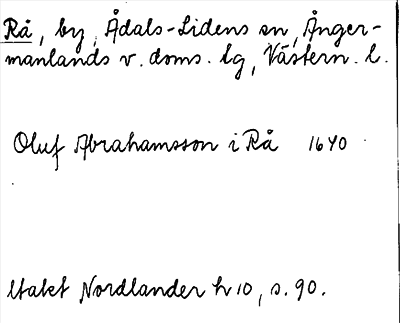 Rå, by, Ådals-Lidens sn, Ånger-
manlands v. doms. lg, Västern. l.
Oluf Abrahamsson i Rå 1640
Utakt Nordlander hv 10, s. 90.